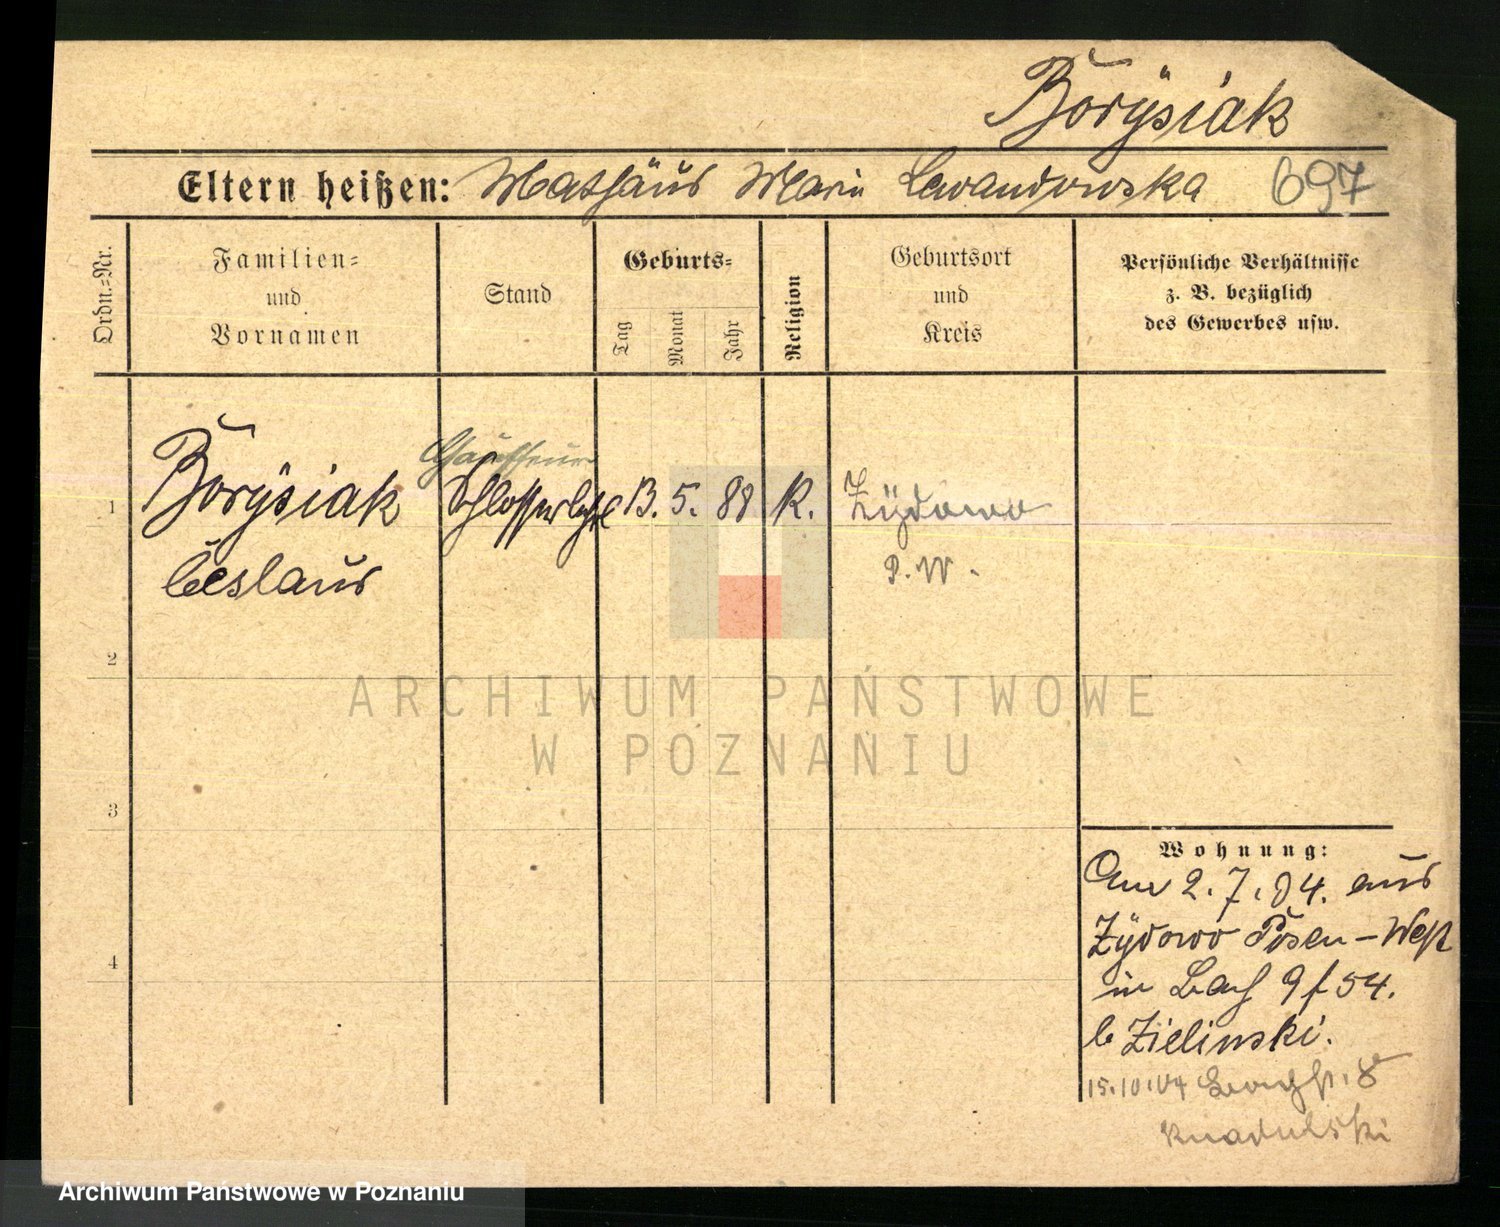 Borÿsiak
Eltern heißen: Mathäus Maria Lewandowska 697
Ordn.-Nr.
Familien=
und
Vornamen
Stand
Geburts=
Tag
Monat
Jahr
Religion
Geburtsort
und
Kreis
Persönliche Verhältnisse
z. B. bezüglich
des Gewerbes usw.
Chauffeur
1 Borÿsiak Schlosserlehrl 13. 5. 88 K. Zÿdowo
Ceslaus P. W.
2
ARCHIWUM PAŃSTWOWE
W POZNANIU
3
Wohnung:
Am 2.7.04. aus
Zÿdowo Posen-West
in 54.
b Zielinski.
15.10.04 8
4
Archiwum Państwowe w Poznaniu